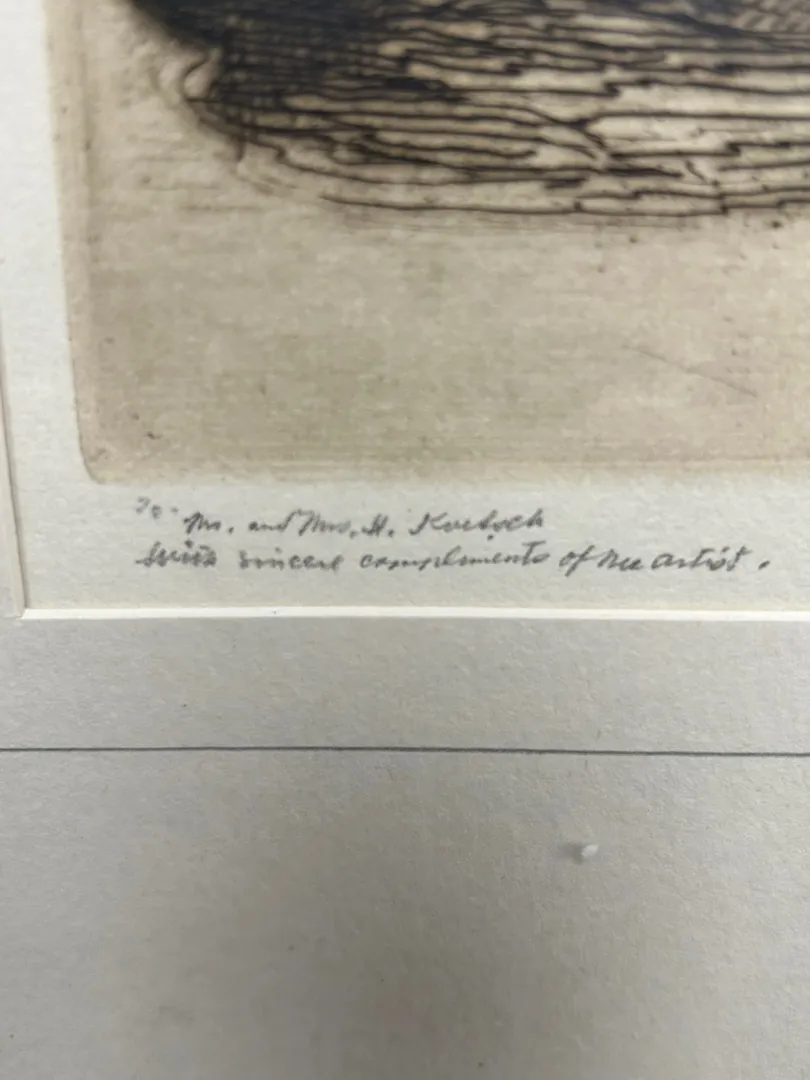 To Mr. and Mrs. H.
with sincere compliments of the artist.